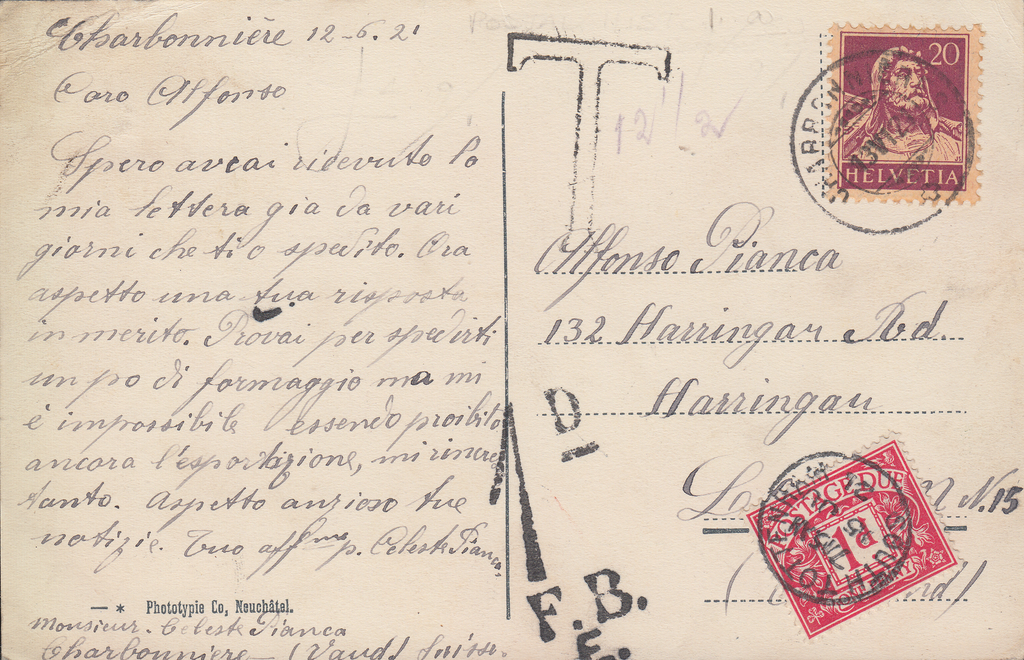 Charbonnière 12-6.21
Caro Alfonso
Spero avrai ricevuto la
mia lettera gia da vari
giorni che ti o spedito. Ora
aspetto una tua risposta
in merito. Provai per spedirti
un po di formaggio ma mi
é impossibile essendo proibito
ancora l'esportazione, mi rincre
tanto. Aspetto anzioso tue
notizie. Tuo affmo p. Celeste Pianca
— * Phototypie Co, Neuchâtel.
Monsieur. Celeste Pianca
Charbonniere — (Vaud) Suisse.
T
12 1/2
20
HELVETIA
Alfonso Pianca
132 Harringar Rd.
Harringau
N.15
D
1
F.B.
POSTAGE DUE
1d
SOUTH TOTTENHAM